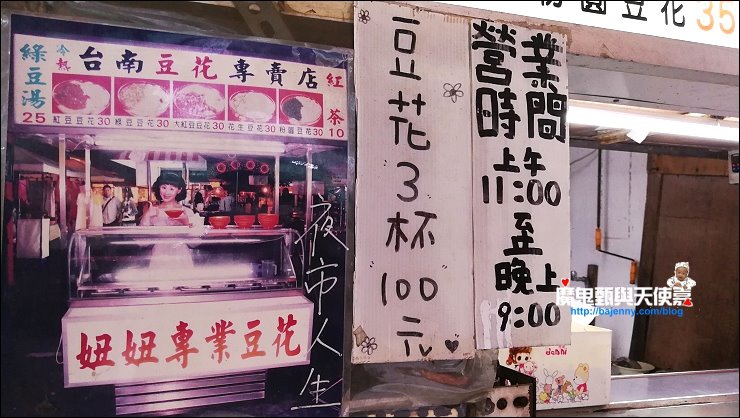 綠豆湯 25
冷熱
台南豆花專賣店
紅茶 10
紅豆豆花30 綠豆豆花30 大紅豆豆花30 花生豆花30 粉圓豆花30
妞妞專業豆花
夜市人生
豆花3杯100元
營業時間
上午
11:00
至
晚上
9:00
粉圓豆花 35
魔鬼甄與天使嘉
http://bajenny.com/blog